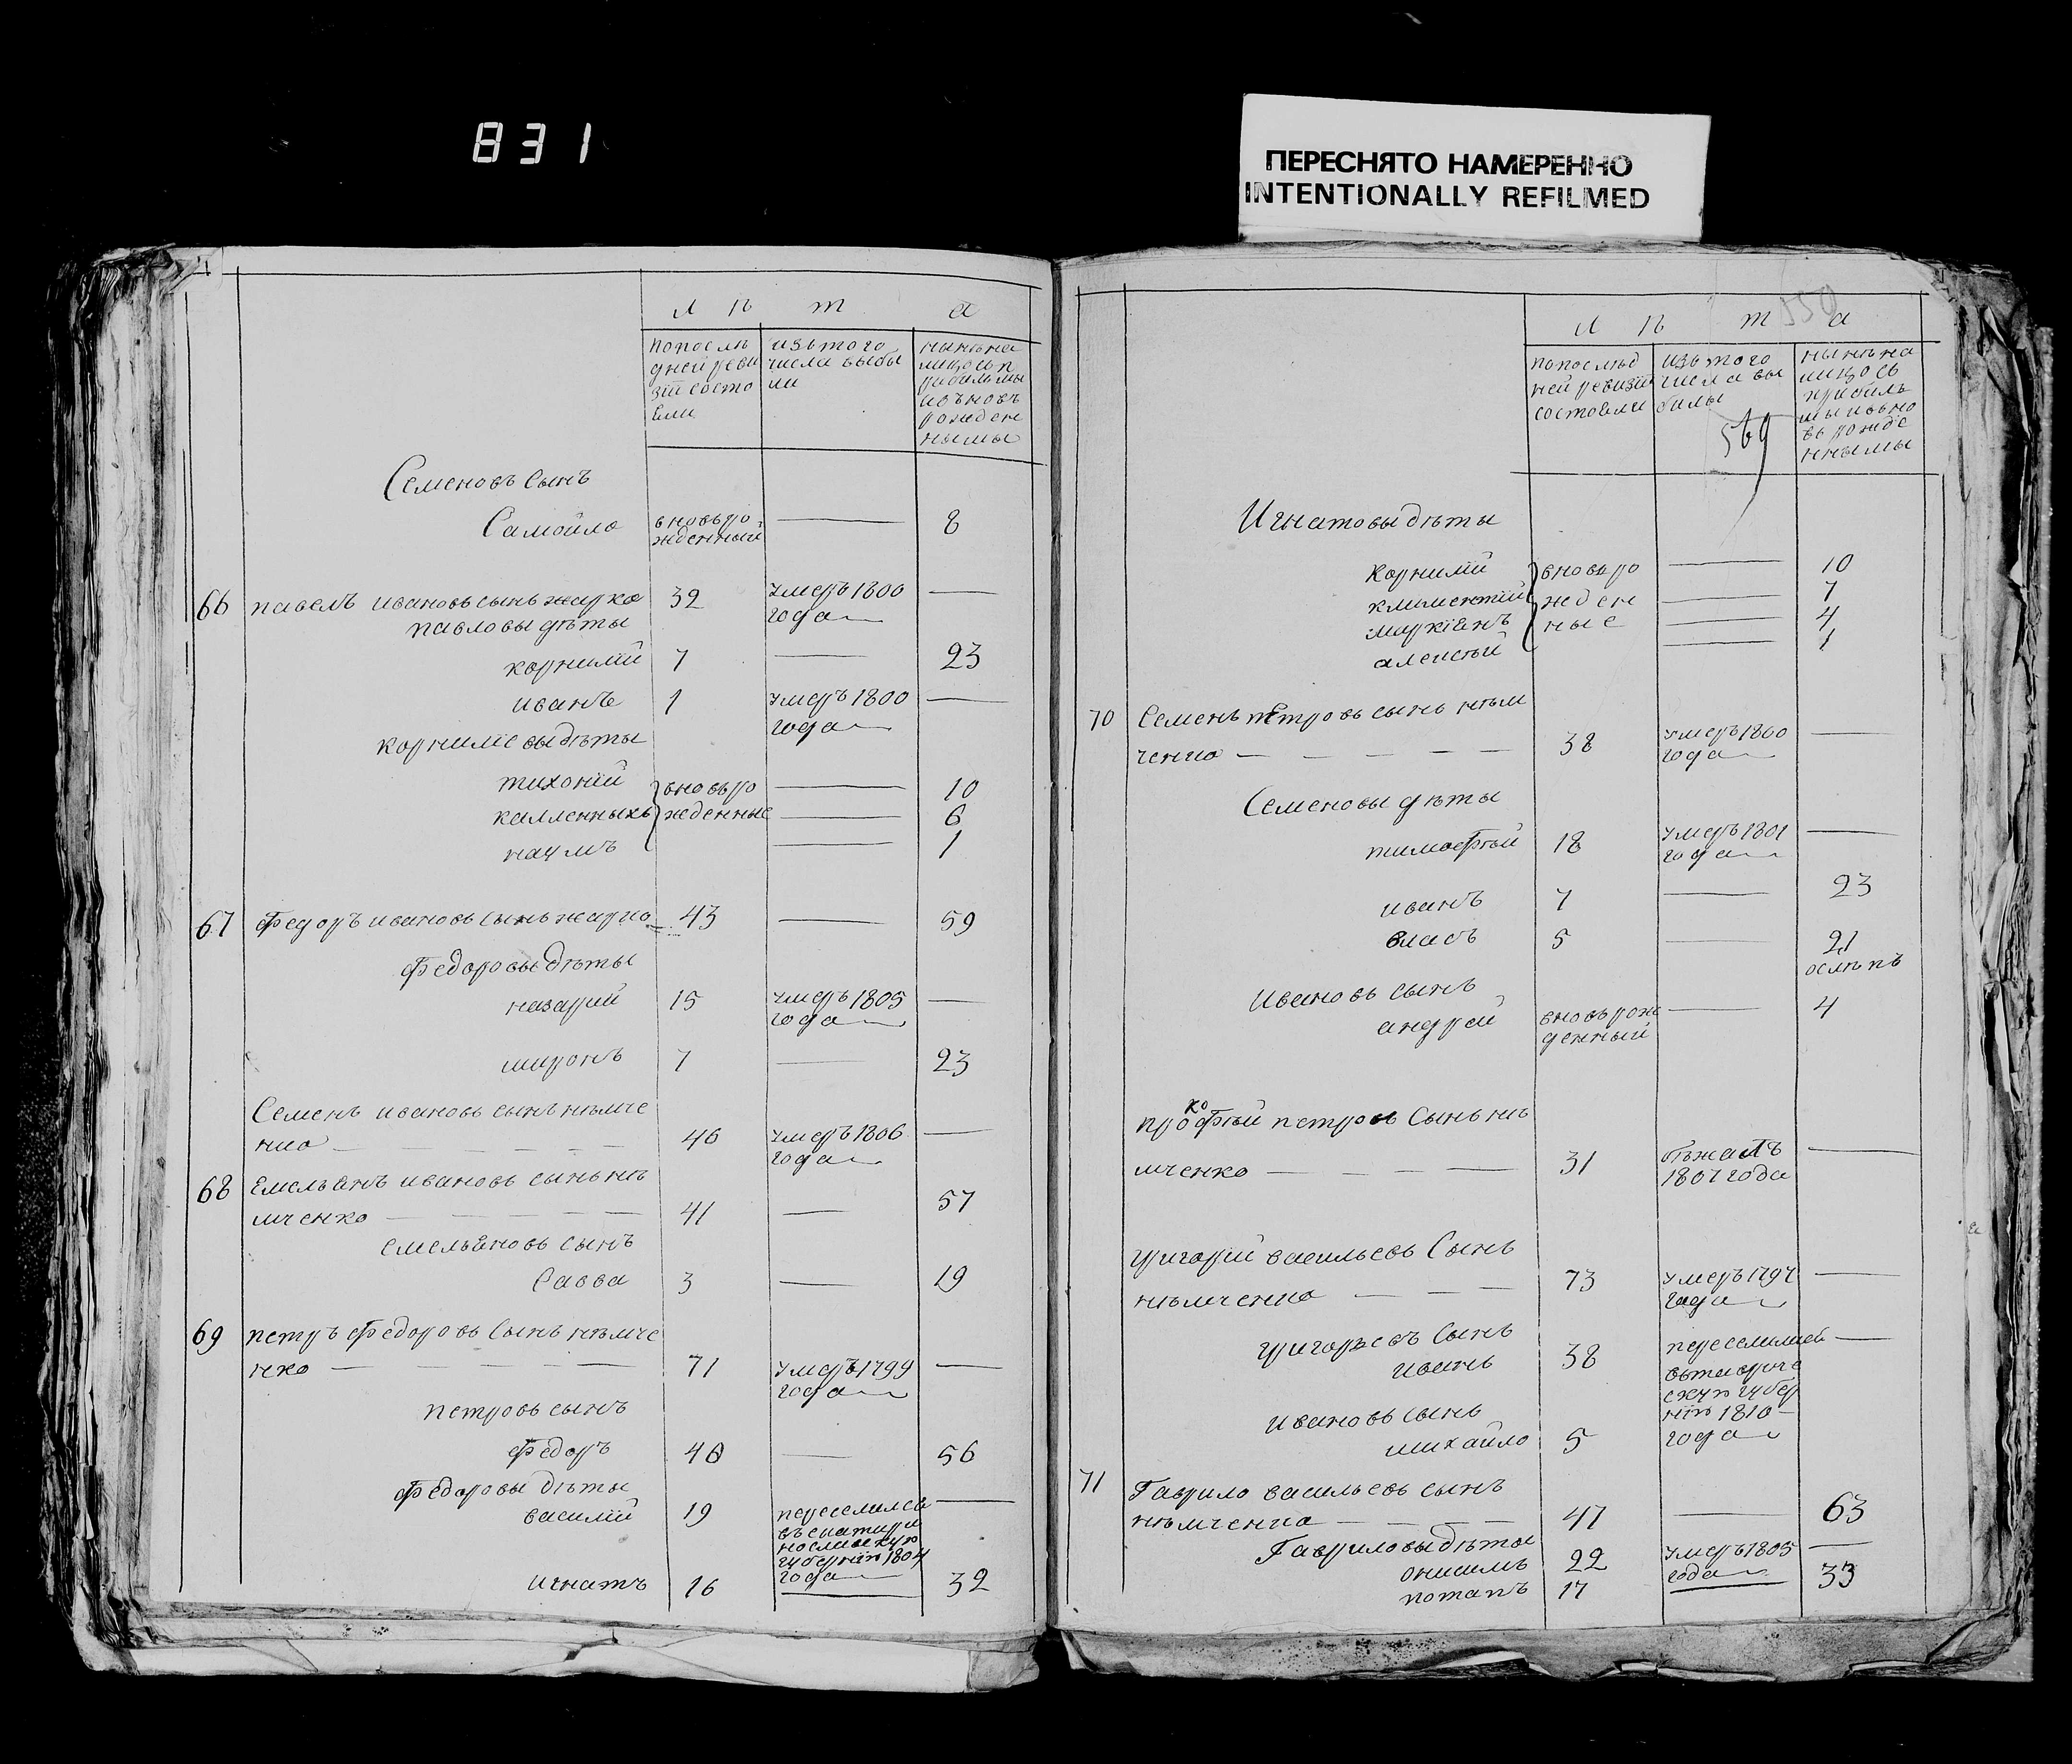 831
ПЕРЕСНЯТО НАМЕРЕННО
INTENTIONALLY REFILMED
л ѣ т а
попослѣ
дней реви
зіи состо
яли
изътого
числа выбы
ли
нынѣна
лицо съп
рибылыми
иъновь
рожден
ными
Семеновъ сынъ
Самойло вновьро 8
жденный
66 павелъ ивановъ сынъ жарко 32 умеръ 1800
года
павловы дѣты
корнилій 7 23
иванъ 1 умеръ 1800
года
корниліевы дѣты
тихоній вновьро 10
калленникъ жденные 6
наумъ 1
67 Федоръ ивановъ сынъ жарко 43 59
Федоровы дѣты
назарий 15 умеръ 1805
года
миронъ 7 23
Семенъ ивановъ сынъ нѣмче
нко 46 умеръ 1806
года
68 Емельянъ ивановъ сынъ нѣ
мченко 41 57
емельяновъ сынъ
Савва 3 19
69 петръ Федоровъ Сынъ нѣмче
нко 71 умеръ 1799
года
петровъ сынъ
Федоръ 40 56
Федоровы дѣты
василій 19 переселился
въ екатири
нославскую
губернію 1804
года
игнатъ 16 32
550
л ѣ т а
попослѣд
ней ревизіи
состояли
изътого
числа вы
были
569
нынѣна
лицо съ
прибылы
мы ивьно
вь рожде
ннымы
Игнатовы дѣты
корнилій вновьро 10
климентій жден 7
маркіянъ ные 4
алексѣй 1
70 Семенъ петровъ сынъ нѣм
ченко 38 умеръ 1800
года
Семеновы дѣты
тимофѣй 18 умеръ 1801
года
иванъ 7 23
власъ 5 21
ослѣпъ
Ивановъ сынъ
андрей вновьрож 4
денный
ко
профѣй петровъ Сынъ нѣ
мченко 31 бѣжалъ
1807 года
григорій васильевъ Сынъ
нѣмченко 73 умеръ 1797
года
григорьевъ Сынъ
иванъ 38 переселился
вътавриче
скую губер
нію 1810
года
ивановъ сынъ
михайло 5
71 Гаврило васильевъ сынъ
нѣмченко 47 63
Гавриловы дѣты
онисимъ 22 умеръ 1805
года
потапъ 17 33